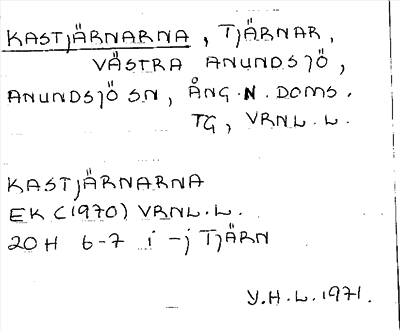 KASTJÄRNARNA, TJÄRNAR,
VÄSTRA ANUNDSJÖ,
ANUNDSJÖ SN, ÅNG.N.DOMS.
TG, VRNL.L.
KASTJÄRNARNA
EK (1970) VRNL.L.
20H 6-7 i-j TJÄRN
Y.H.L.1971.